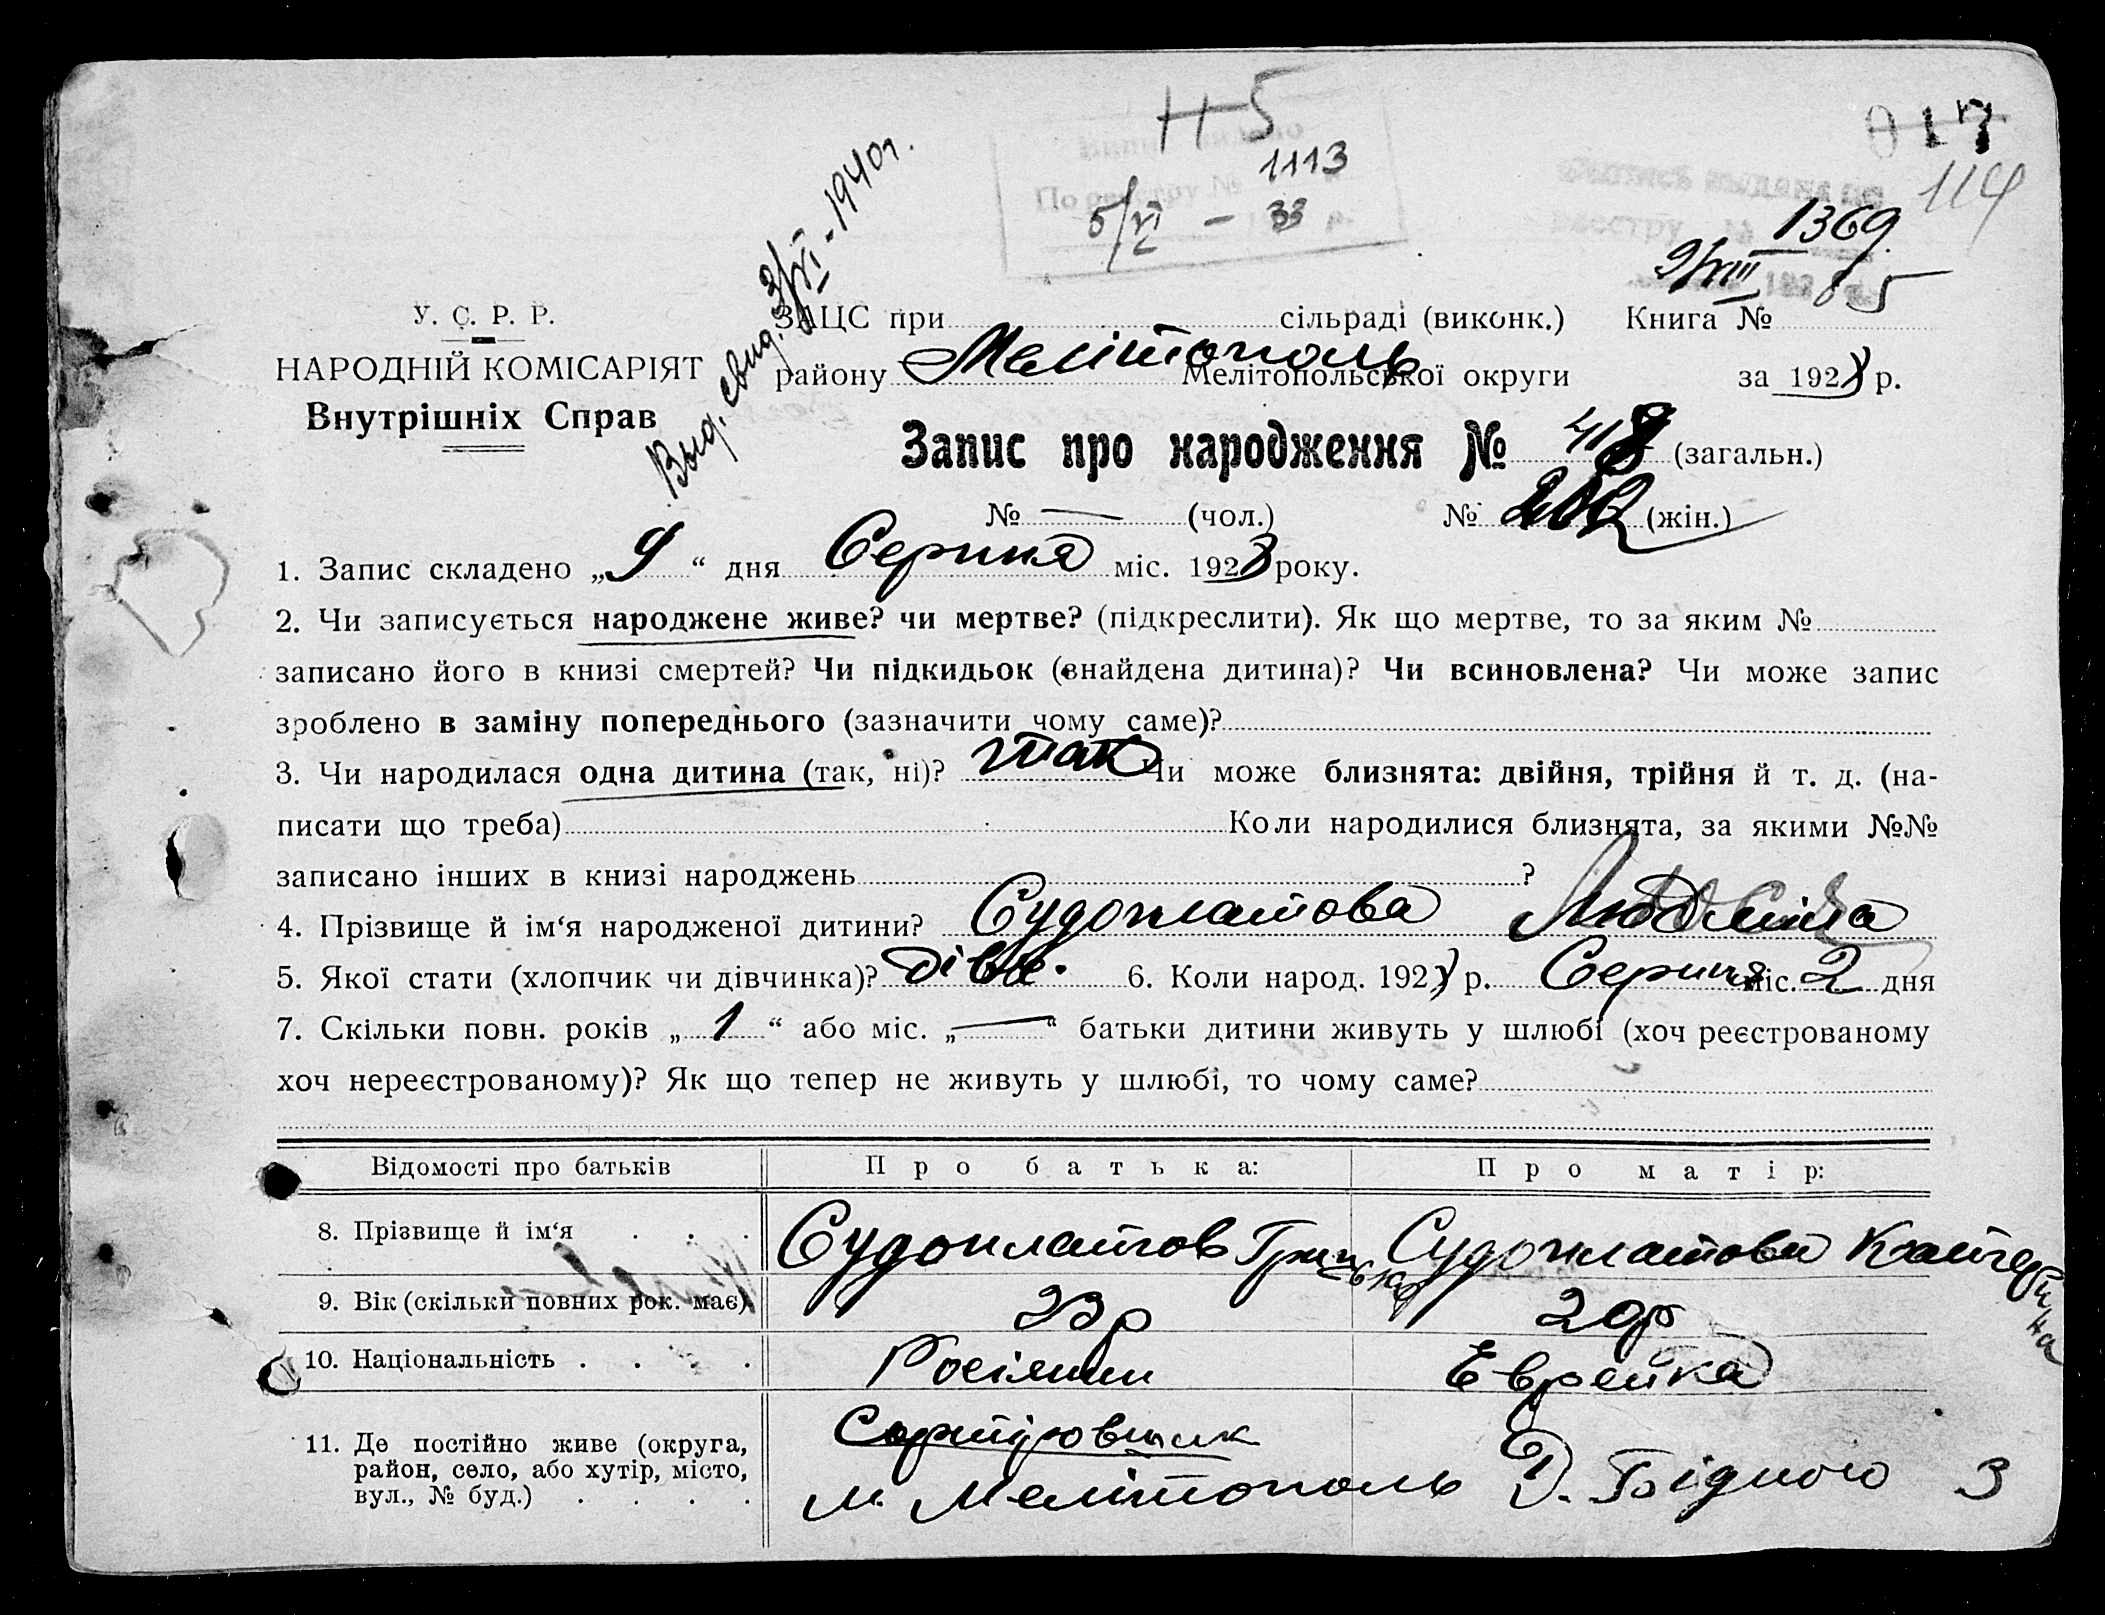 Н5
017
1113
114
По реєстру №
5/VI – 33 р.
Выд. свид. 3/XI-1940г.
1369
9/VIII 5
У. С. Р. Р.
ЗАЦС при сільраді (виконк.) Книга №
НАРОДНІЙ КОМІСАРІЯТ
району Мелітополь Мелітопольської округи за 1928 р.
Внутрішніх Справ
Запис про народження № 418 (загальн.)
№ — (чол.) № 202 (жін.)
1. Запис складено „9“ дня Серпня міс. 1928 року.
2. Чи записується народжене живе? чи мертве? (підкреслити). Як що мертве, то за яким №
записано його в книзі смертей? Чи підкидьок (внайдена дитина)? Чи всиновлена? Чи може запис
зроблено в заміну попереднього (зазначити чому саме)?
3. Чи народилася одна дитина (так, ні)? так Чи може близнята: двійня, трійня й т. д. (на-
писати що треба) Коли народилися близнята, за якими №№
записано інших в книзі народжень ?
4. Прізвище й ім‘я народженої дитини? Судоплатова Людміла
5. Якої стати (хлопчик чи дівчинка)? дівч. 6. Коли народ. 1928 р. Серпня міс. 2 дня
7. Скільки повн. років „ 1 “ або міс. „—“ батьки дитини живуть у шлюбі (хоч реєстрованому
хоч нереєстрованому)? Як що тепер не живуть у шлюбі, то чому саме?
Відомості про батьків Про батька: Про матір:
8. Прізвище й ім‘я . . . Судоплатов Григорій Судоплатова Катерина
9. Вік (скільки повних рок. має) 23 р 20 р
10. Національність . . . . Росіянин Еврейка
Сортіровщик
11. Де постійно живе (округа,
район, село, або хутір, місто,
вул., № буд.) . . . . м. Мелітополь Д. Бідного 3